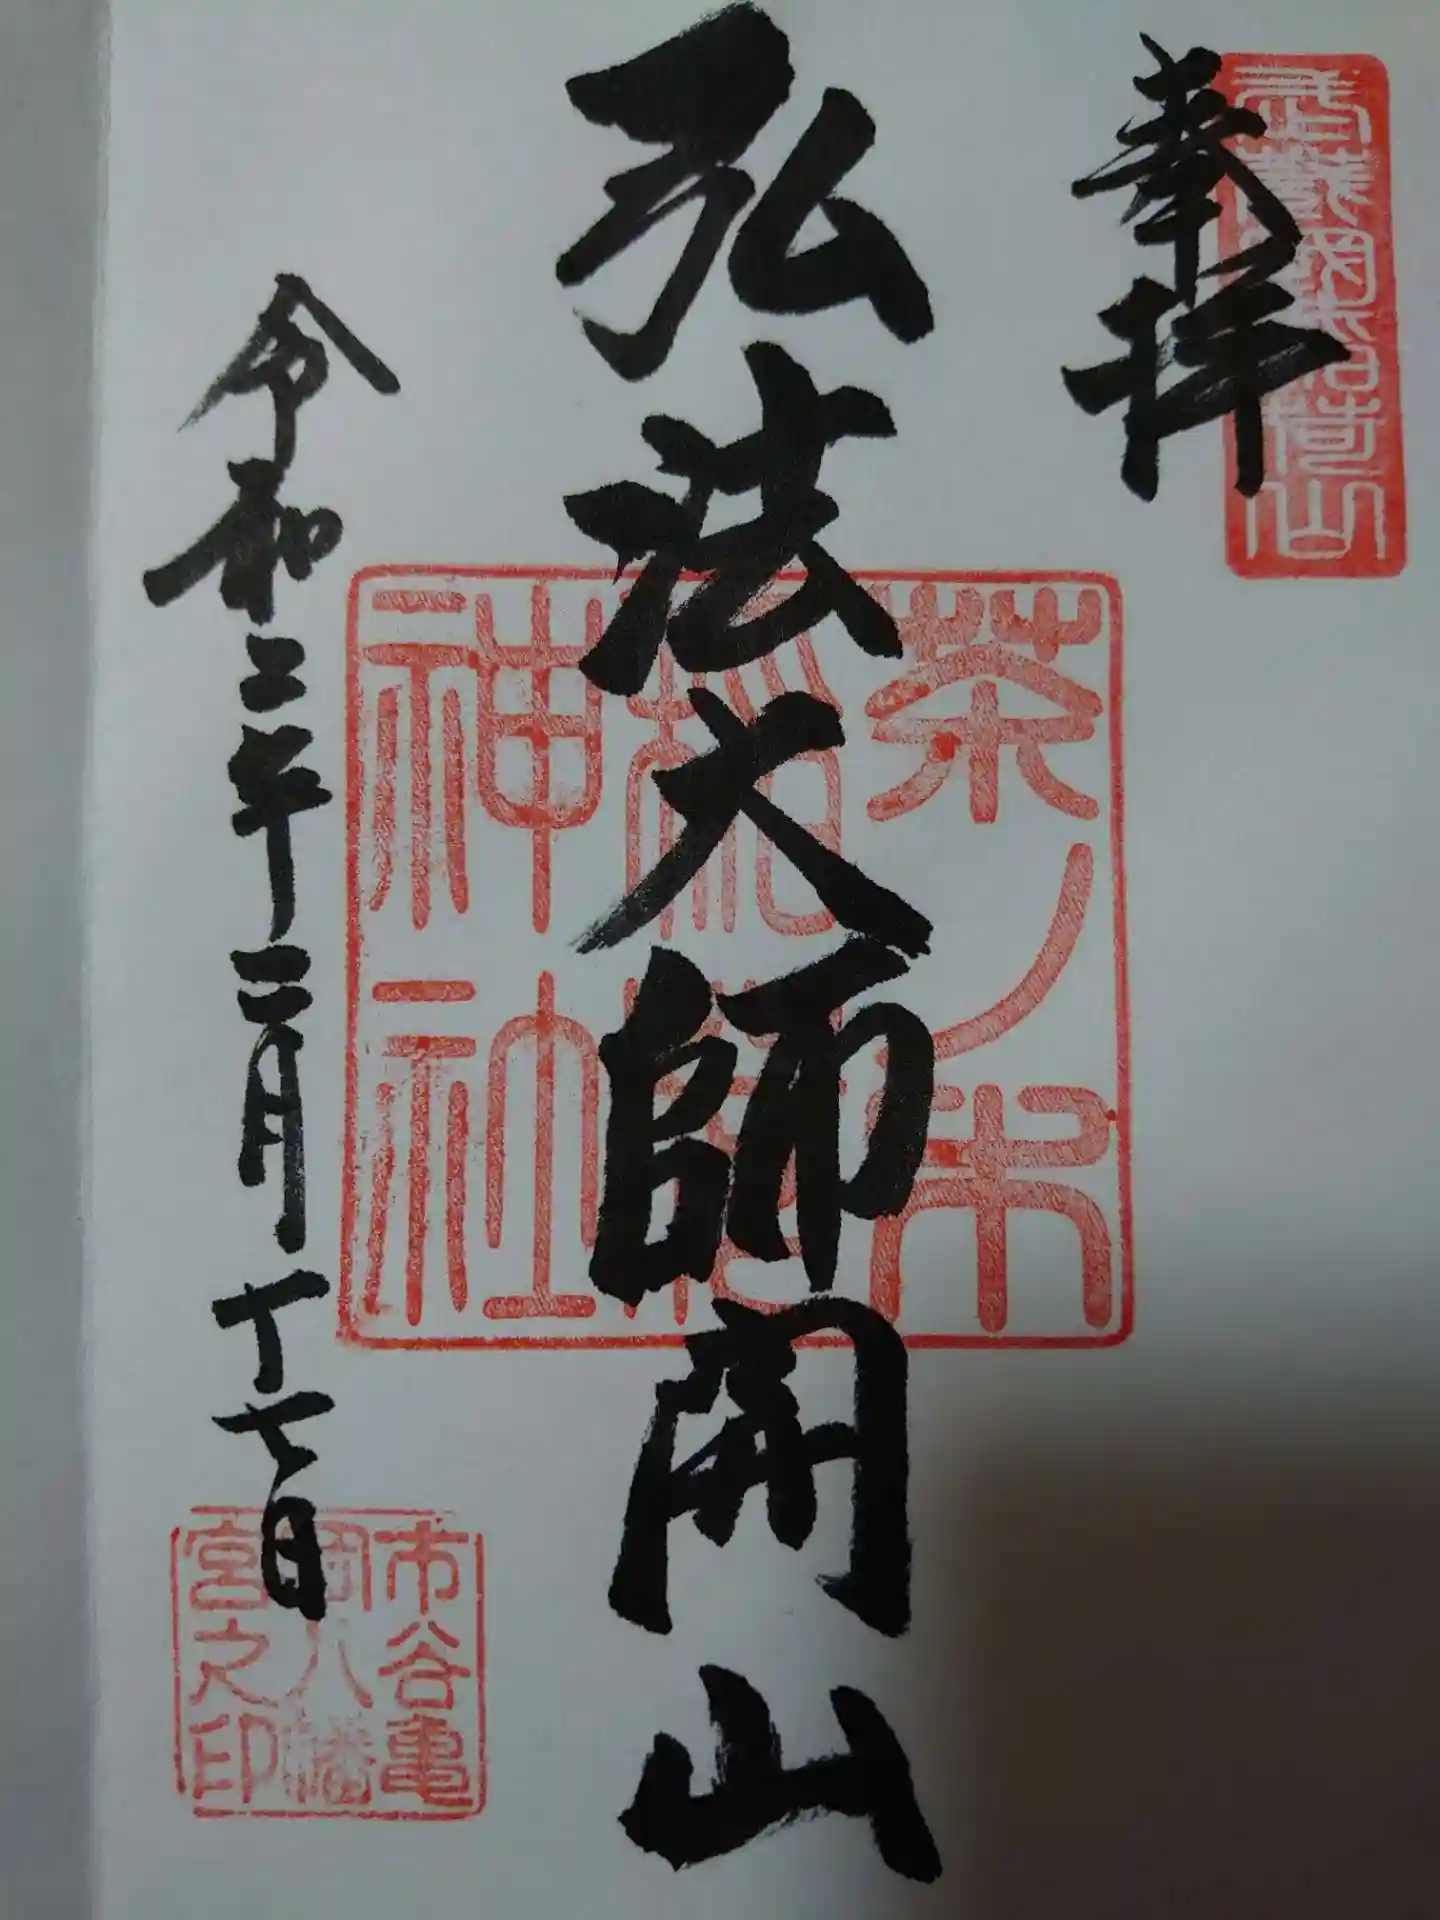 奉拝
武蔵國稲荷山
弘法大師開山
茶ノ木
稲荷
神社
令和二年二月十七日
市谷亀
岡八幡
宮之印